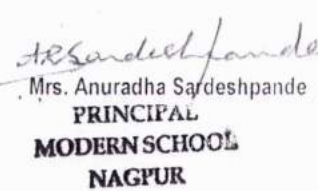 A.R.Sardeshpande
Mrs. Anuradha Sardeshpande
PRINCIPAL
MODERN SCHOOL
NAGPUR